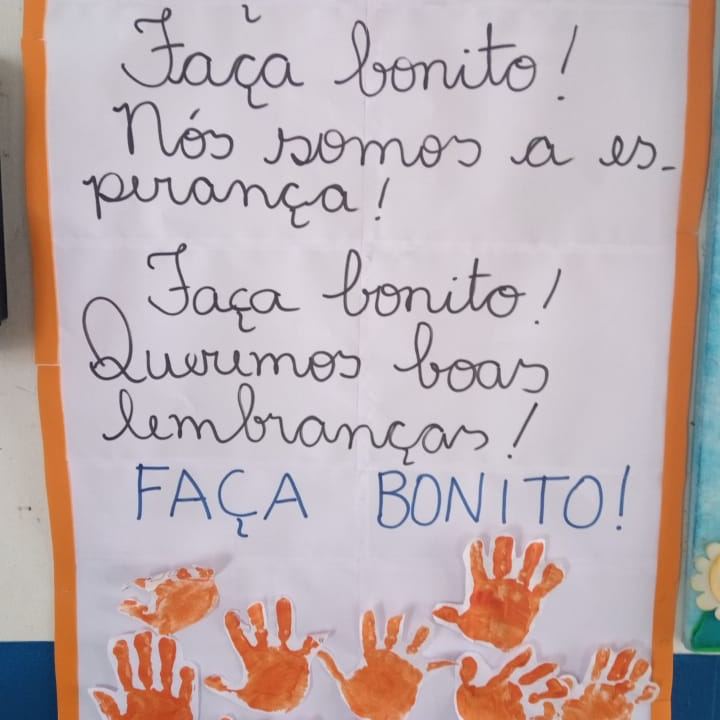 Faça bonito!
Nós somos a es-
perança!
Faça bonito!
Queremos boas
lembranças!
FAÇA BONITO!